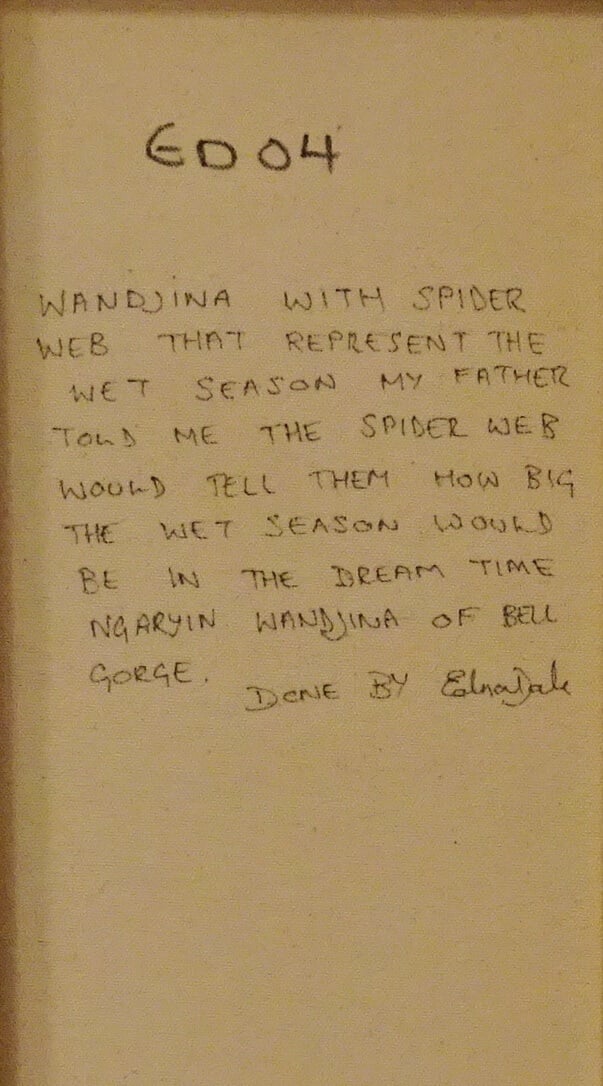 ED 04
WANDJINA WITH SPIDER
WEB THAT REPRESENT THE
WET SEASON MY FATHER
TOLD ME THE SPIDER WEB
WOULD TELL THEM HOW BIG
THE WET SEASON WOULD
BE IN THE DREAM TIME
NGARYIN WANDJINA OF BELL
GORGE.
DONE BY Edna Dale